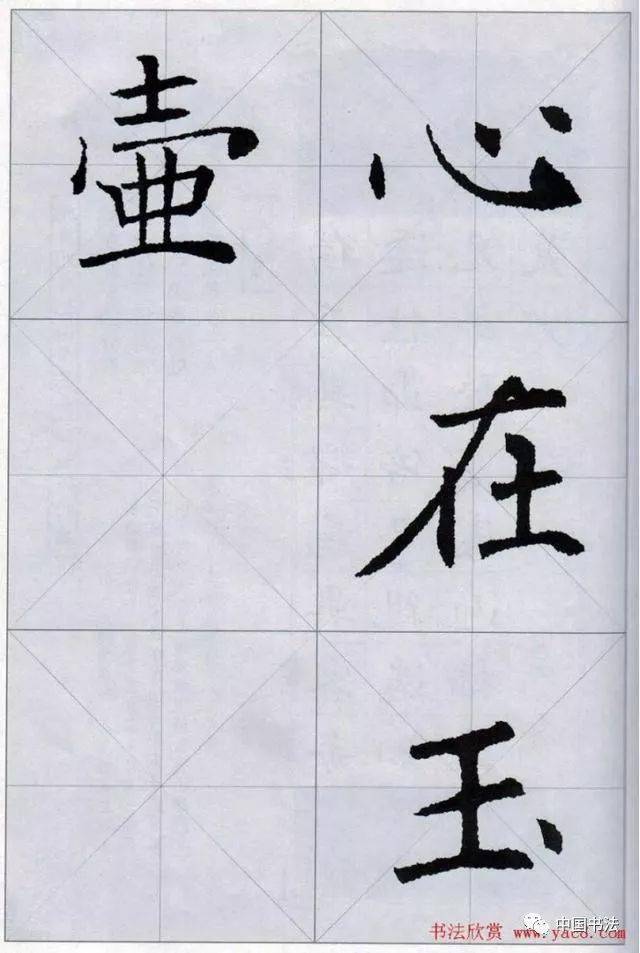 心在玉
壶
书法欣赏 www.yac8.com
中国书法